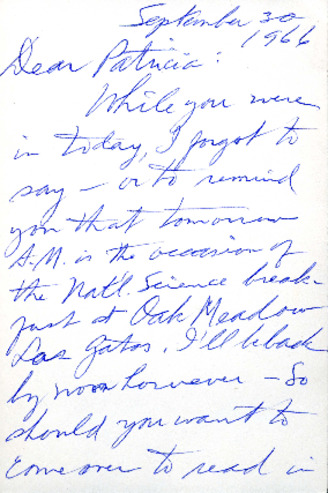 September 30
1966
Dear Patricia:
While you were
in today, I forgot to
say – or to remind
you that tomorrow
A.M. is the occasion of
the Nat'l. Science break-
fast at Oak Meadow
Los Gatos. I'll be back
by noon however – So
should you want to
come over to read in